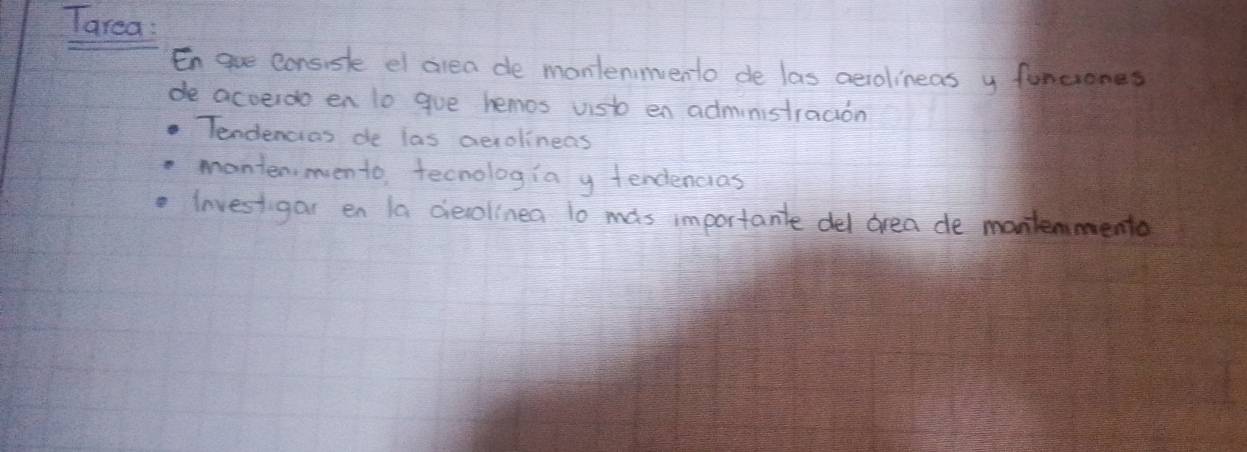 Tarea:
En que consiste el área de mantenimiento de las aerolíneas y funciones
de acuerdo en lo que hemos visto en administración
• Tendencias de las aerolíneas
• mantenimiento, tecnología y tendencias
• Investigar en la aerolínea lo más importante del área de mantenimiento